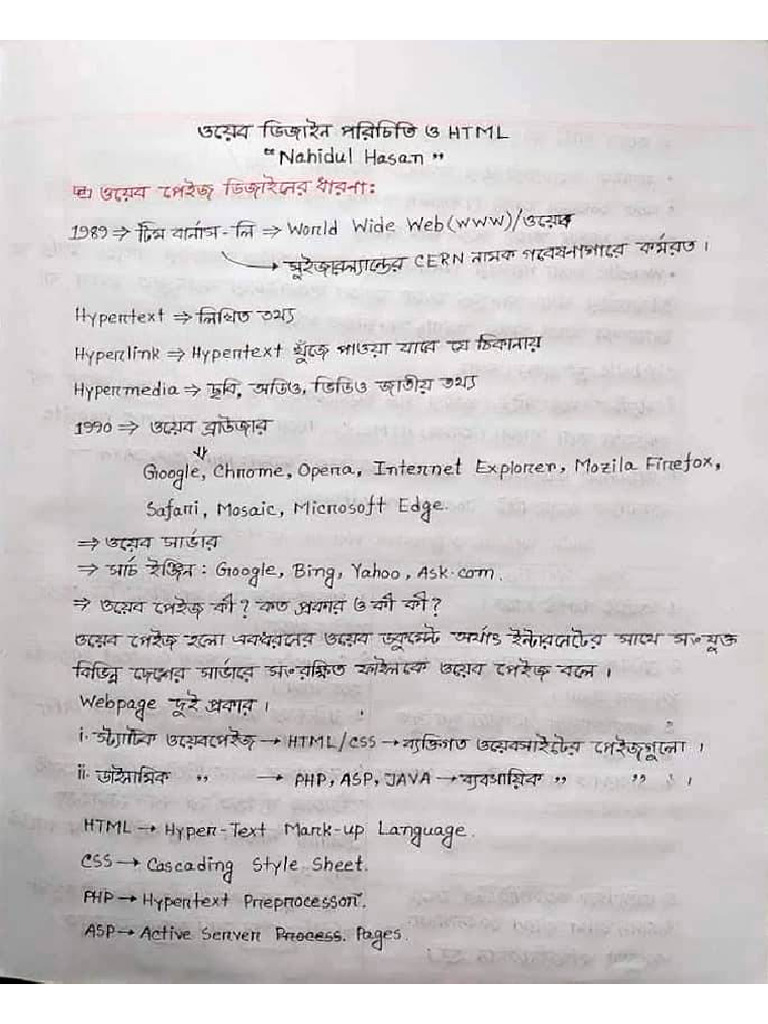 ওয়েব ডিজাইন পরিচিতি ও HTML
"Nahidul Hasan"
ওয়েব পেইজ ডিজাইনের ধারনা:
1989 ⇒ টিম বার্নাস - লি ⇒ World Wide Web (WWW)/ওয়েব
→ সুইজারল্যান্ডের CERN নামক গবেষনাগারে কর্মরত।
Hypertext ⇒ লিখিত তথ্য
Hyperlink ⇒ Hypertext খুঁজে পাওয়া যাবে যে ঠিকানায়
Hypermedia ⇒ ছবি, অডিও, ভিডিও জাতীয় তথ্য
1990 ⇒ ওয়েব ব্রাউজার
⇓
Google, Chrome, Opera, Internet Explorer, Mozila Firefox,
Safari, Mosaic, Microsoft Edge.
⇒ ওয়েব সার্ভার
⇒ সার্চ ইঞ্জিন : Google, Bing, Yahoo, Ask.com.
⇒ ওয়েব পেইজ কী? কত প্রকার ও কী কী?
ওয়েব পেইজ হলো একধরনের ওয়েব ডকুমেন্ট অর্থাৎ ইন্টারনেটের সাথে সংযুক্ত
বিভিন্ন দেশের সার্ভারে সংরক্ষিত ফাইলকে ওয়েব পেইজ বলে।
Webpage দুই প্রকার।
i. স্ট্যাটিক ওয়েবপেইজ → HTML/CSS → ব্যক্তিগত ওয়েবসাইটের পেইজগুলো।
ii. ডাইনামিক " → PHP, ASP, JAVA → ব্যবসায়িক " " ।
HTML → Hyper-Text Mark-up Language.
CSS → Cascading Style Sheet.
PHP → Hypertext Preprocessor.
ASP → Active Server Process. Pages.